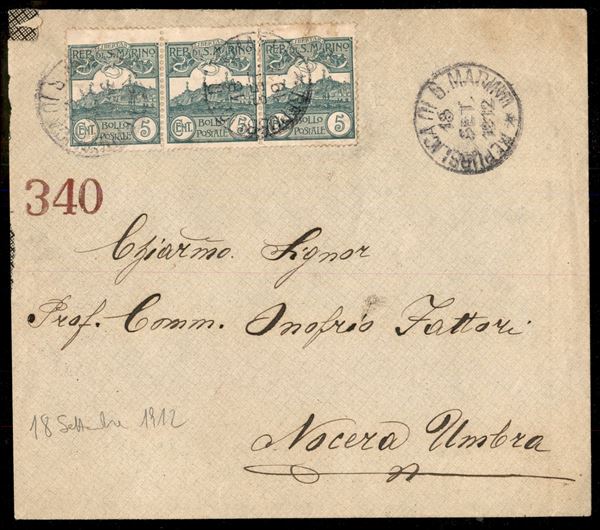 LIBERTAS LIBERTAS LIBERTAS
REP. DI S. MARINO REP. DI S. MARINO REP. DI S. MARINO
CENT. BOLLO POSTALE 5 CENT. BOLLO POSTALE 5 CENT. BOLLO POSTALE 5
REPUBBLICA DI S. MARINO
18
SET
1912
340
Chiarmo. Signor
Prof. Comm. Onofrio Fattori
18 Settembre 1912
Nocera Umbra